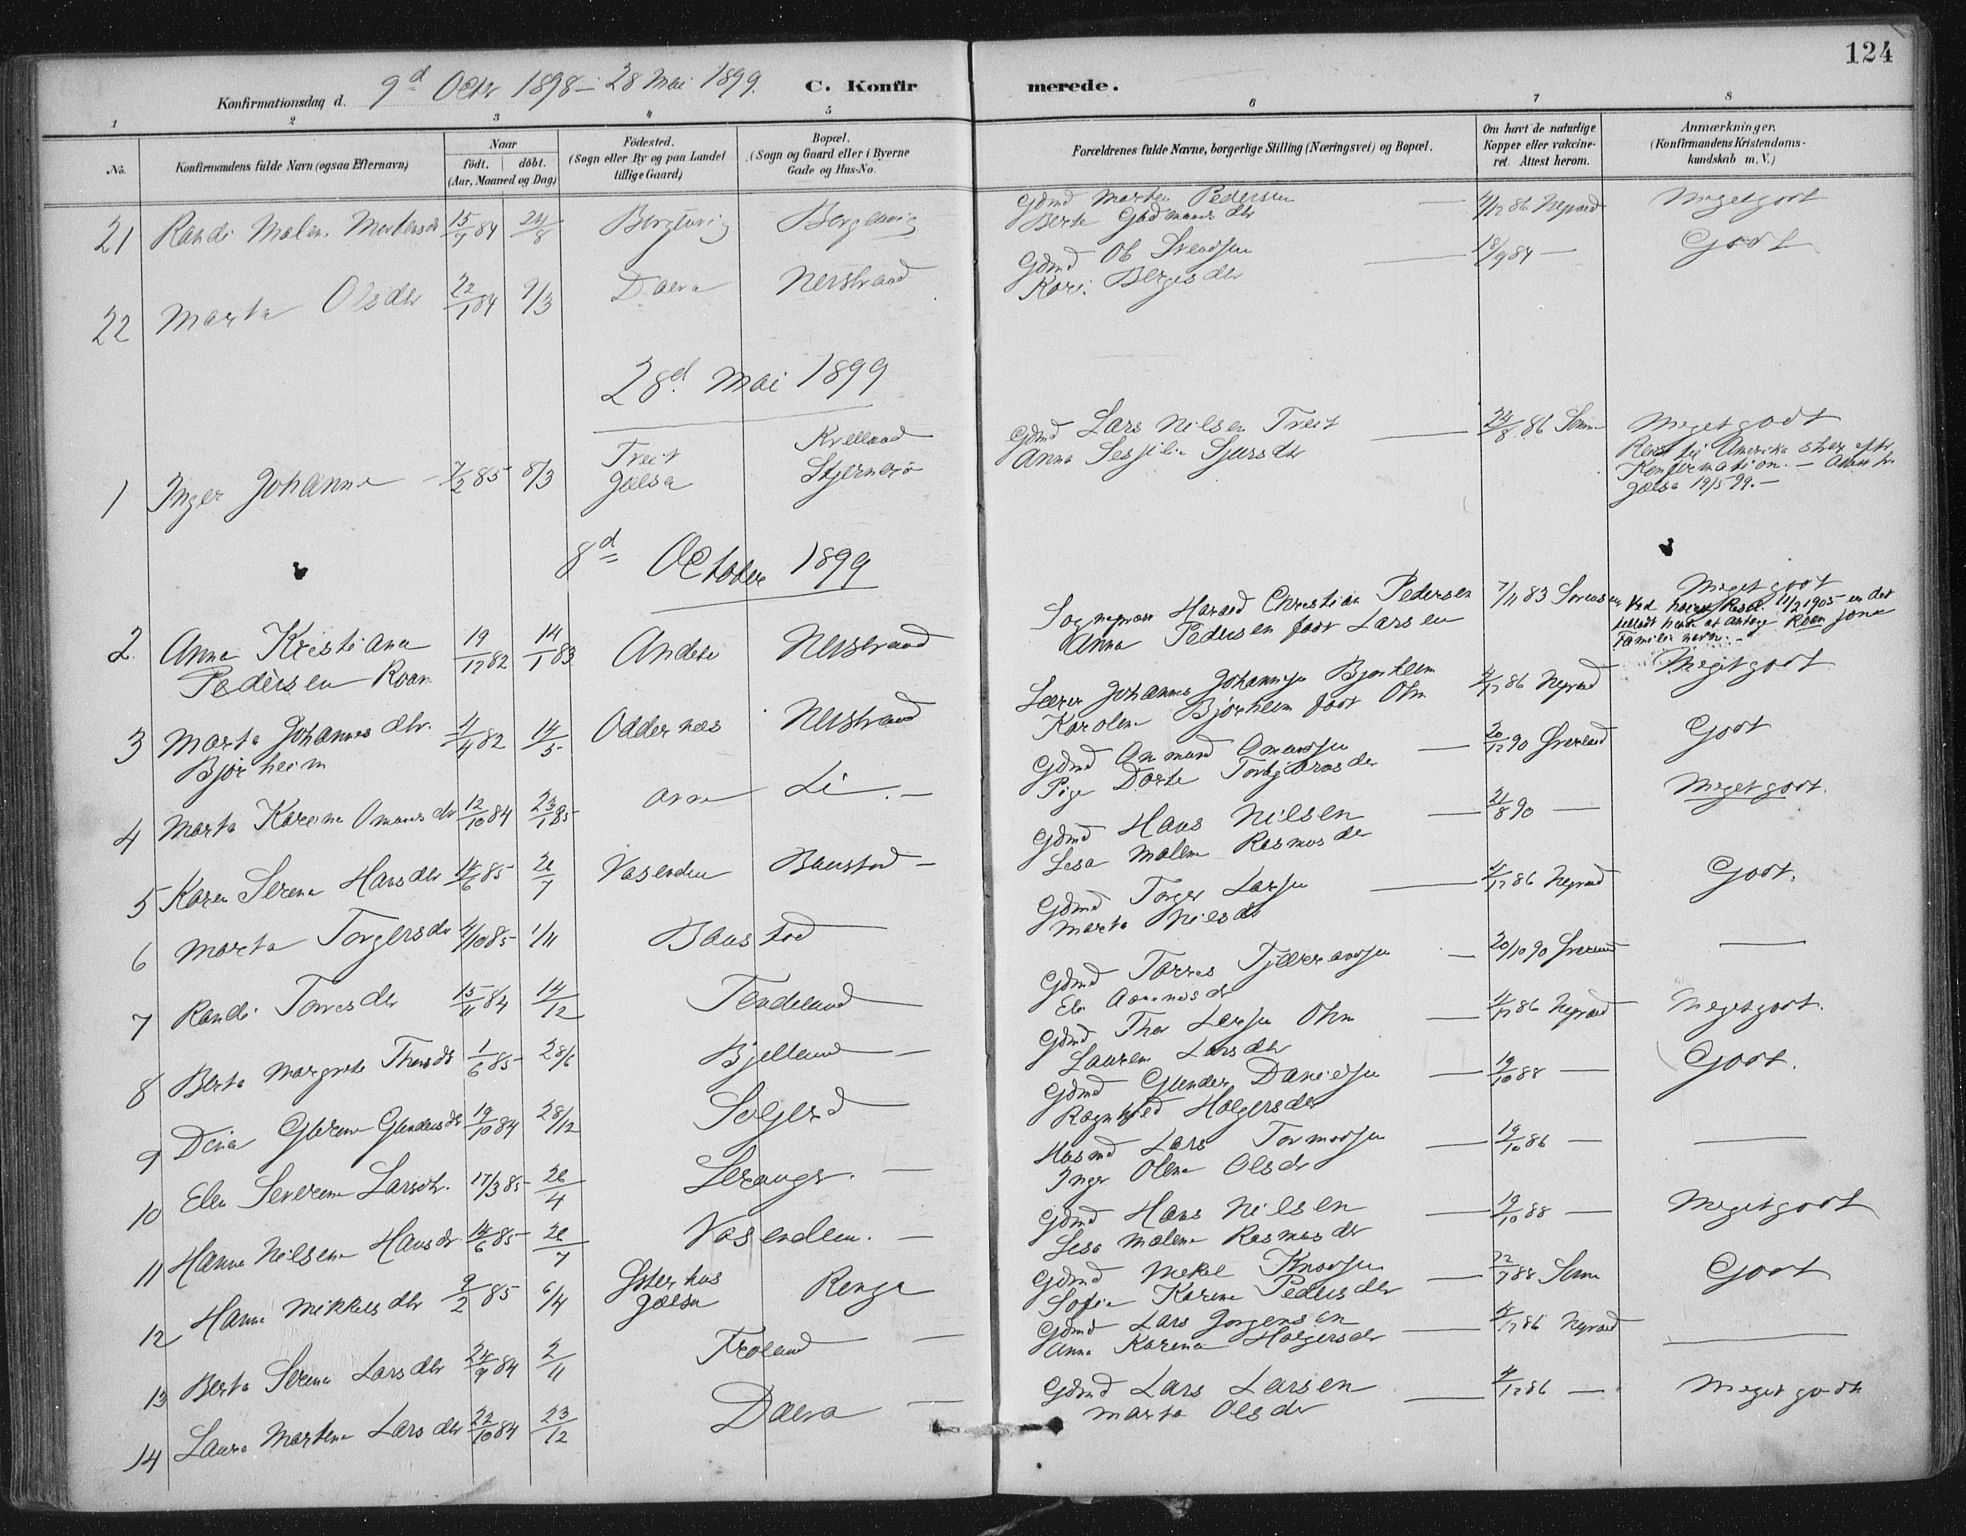 124
Konfirmationsdag d. 9d Octr 1898 – 28 Mai 1899. C. Konfirmerede.
1 2 3 4 5 6 7 8
No.
Konfirmandens fulde Navn (ogsaa Efternavn)
Naar
födt. | döbt.
(Aar, Maaned og Dag)
Födested.
(Sogn eller By og paa Landet
tillige Gaard)
Bopæl.
(Sogn og Gaard eller i Byerne
Gade og Hus-No.
Forældrenes fulde Navne, borgerlige Stilling (Næringsvei) og Bopæl.
Om havt de naturlige
Kopper eller vakcine-
ret. Attest herom.
Anmærkninger.
(Konfirmandens Kristendoms-
kundskab m. V.)
21 Randi Malene 15/7 84 24/8 Gdmd Morten Pedersen Meget godt
Berte Gudmunds dtr
22 Marta Olsdtr 22/1 84 9/3 Nerstrand Gdmd Ol Svendsen 18/9 84 — Godt
Kari Bergesdtr
28d Mai 1899
1 Inger Johanne 7/2 85 8/3 Treit Kvelland Gdmd Lars Nilsen Treit 24/8 86 Meget godt
Jælsa Stjernerö Anna Sjursdtr
Reist til Amerika strax eftr
Konfirmation. – Attest fr
Jælsa 19/5 99. –
8d October 1899
2 Anna Kristiana 19/12 82 14/1 83 Nerstrand Sognepræst Harald Christian Pedersen 7/11 83 Sorensen Meget godt
Pedersen Roan Anna Pedersen født Larsen
1905 er det
tilladt hende at antage Roan som
Familienavn. –
3 Marta Johannesdtr. 4/4 82 14/5 Oddernæs Nerstrand Lærer Johannes Johannesen Bjorheim 4/12 86 Meget godt
Bjorheim Karoline Bjorheim født Ohm
4 Marta Karine Omunds dtr 12/10 84 23/1 85 Li – Gdmd Omund Omundsen 20/12 90 Godt
Pige Dorte Torbjørnsdtr
5 Karen Serena Hansdtr 14/6 85 26/7 Vasenden Baustad – Gdmd Hans Nilsen 21/8 90 — Meget godt.
Lesa Malene Rasmusdtr
6 Marta Torgersdtr 4/10 85 1/11 Baustad Gdmd Torger Larsen 4/12 86 Godt.
Marta Nilsdtr
7 Randi Torresdtr 15/11 84 14/12 Tendeland Gdmd Torres 20/10 90 —
Eli Aanensdtr
8 Berta Margrete Thorsdtr 1/6 85 28/6 Bjelland – Gdmd Thor Larsen Ohm 4/12 86 Meget godt.
Laurine Larsdtr
9 Dina Gurine Gundersdtr 19/10 84 28/12 Solgerd Gdmd Gunder Danielsen 19/10 88 — Godt.
Ragnhild Holgersdtr
10 Elen Severine Larsdtr. 17/3 85 26/4 Leranger. – Husmd Lars Tormodsen 19/10 86 — —
Inger Olene Olsdtr
11 Hanna Nilsine Hansdtr 14/6 85 26/7 Vasenden. – Gdmd Hans Nilsen 19/10 88 — Meget godt
Lesa Malene Rasmusdtr
12 Hanna Mikkelsdtr 9/2 85 6/4 Østerhus Renge Gdmd Mekel Knudsen 22/9 88 Godt
Jælsa Sofie Karine Pedersdtr
13 Berta Serina Larsdtr 24/9 84 2/11 Froland – Gdmd Lars Jorgensen 4/12 86 —
Anna Karina Holgersdtr
14 Laura Martine Larsdtr 22/10 84 23/12 – Gdmd Lars Larsen 4/12 86 — Meget godt
Marta Olsdtr